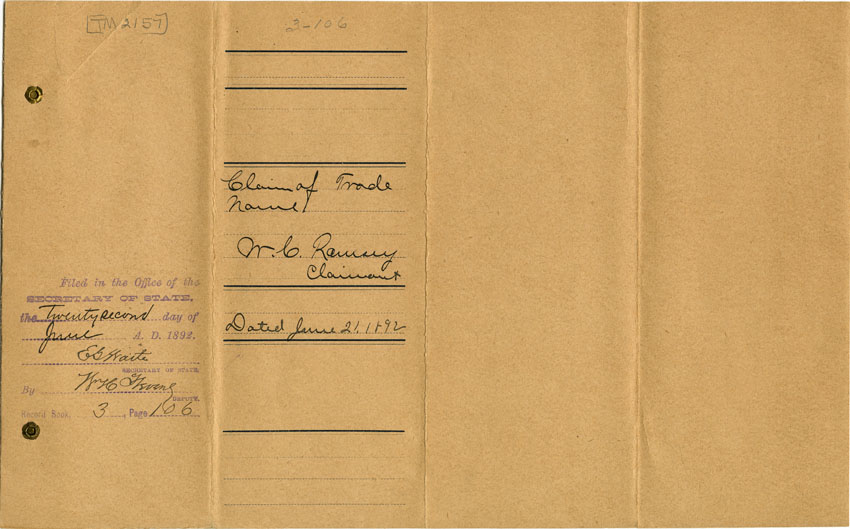 TM 2157
3-106
Claim of Trade
Name
W. C. Ramsey
Claimant
Dated June 21, 1892
Filed in the Office of the
SECRETARY OF STATE,
the Twenty second day of
June A. D. 1892.
E G Waite
SECRETARY OF STATE,
By W H
DEPUTY.
Record Book, 3, Page 106